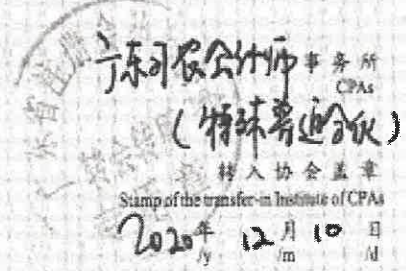 广东司农会计师事务所
CPAs
（特殊普通合伙）
转入协会盖章
Stamp of the transfer-in Institute of CPAs
2020年 12月 10日
/y /m /d